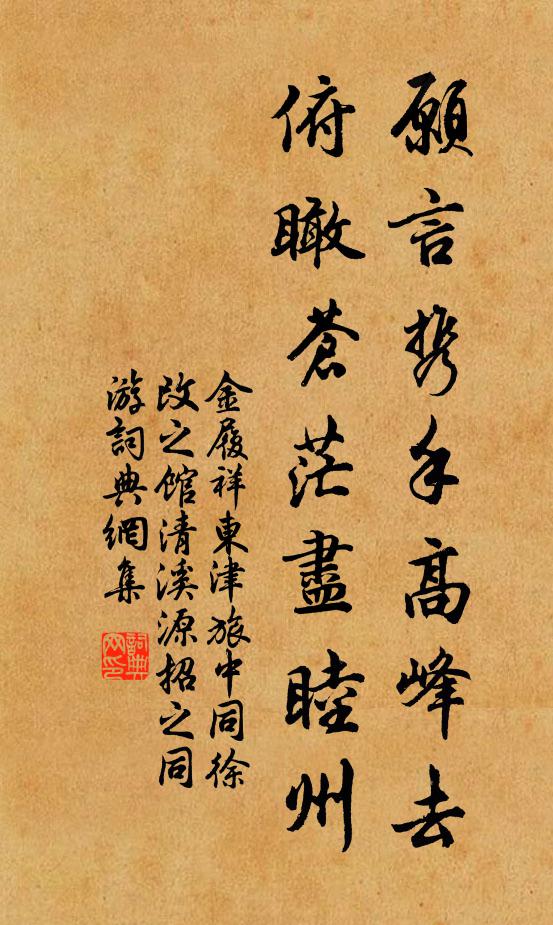 願言携手高峰去
俯瞰蒼茫盡睦州
金履祥東津旅中同徐
改之館清溪源招之同
游詞典網集
詞典
网